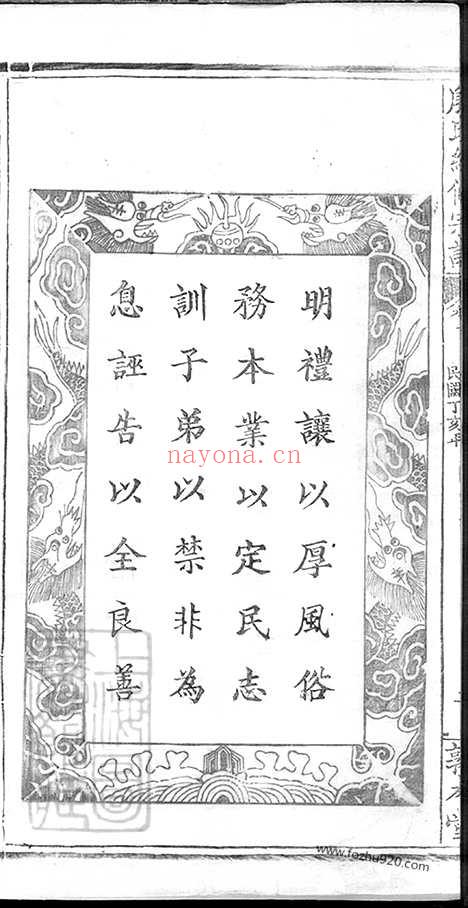 明禮讓以厚風俗
務本業以定民志
訓子弟以禁非為
息誣告以全良善
民國丁亥年
nayona.cn
www.fozhu920.com